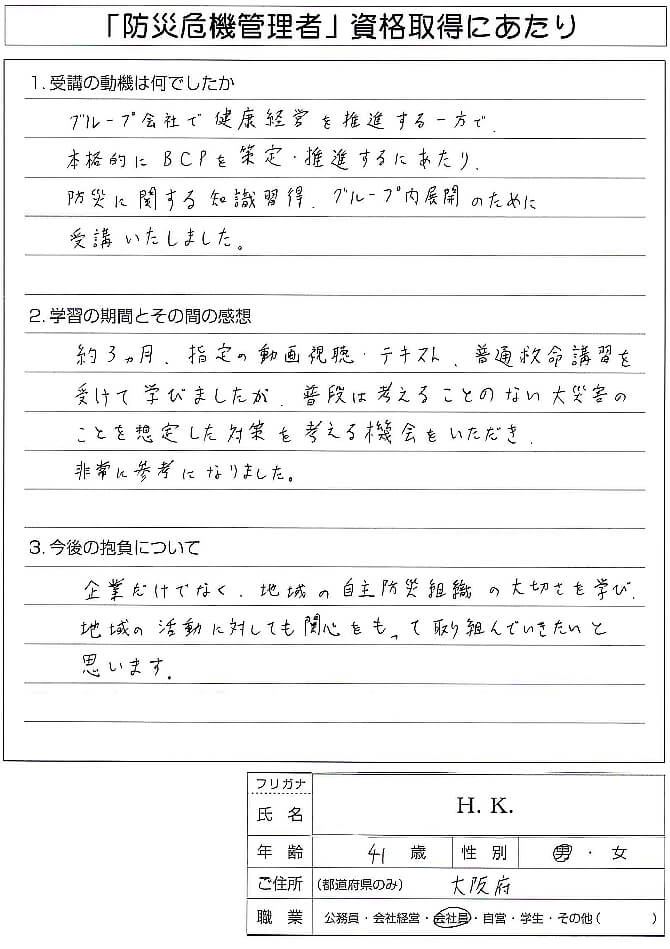 「防災危機管理者」資格取得にあたり
1.受講の動機は何でしたか
グループ会社で健康経営を推進する一方で、
本格的にBCPを策定・推進するにあたり、
防災に関する知識習得、グループ内展開のために
受講いたしました。
2.学習の期間とその間の感想
約3ヵ月、指定の動画視聴・テキスト、普通救命講習を
受けて学びましたが、普段は考えることのない大災害の
ことを想定した対策を考える機会をいただき、
非常に参考になりました。
3.今後の抱負について
企業だけでなく、地域の自主防災組織の大切さを学び、
地域の活動に対しても関心をもって取り組んでいきたいと
思います。
フリガナ
氏名 H. K.
年齢 41歳 性別 男・女
ご住所 (都道府県のみ) 大阪府
職業 公務員・会社経営・会社員・自営・学生・その他( )